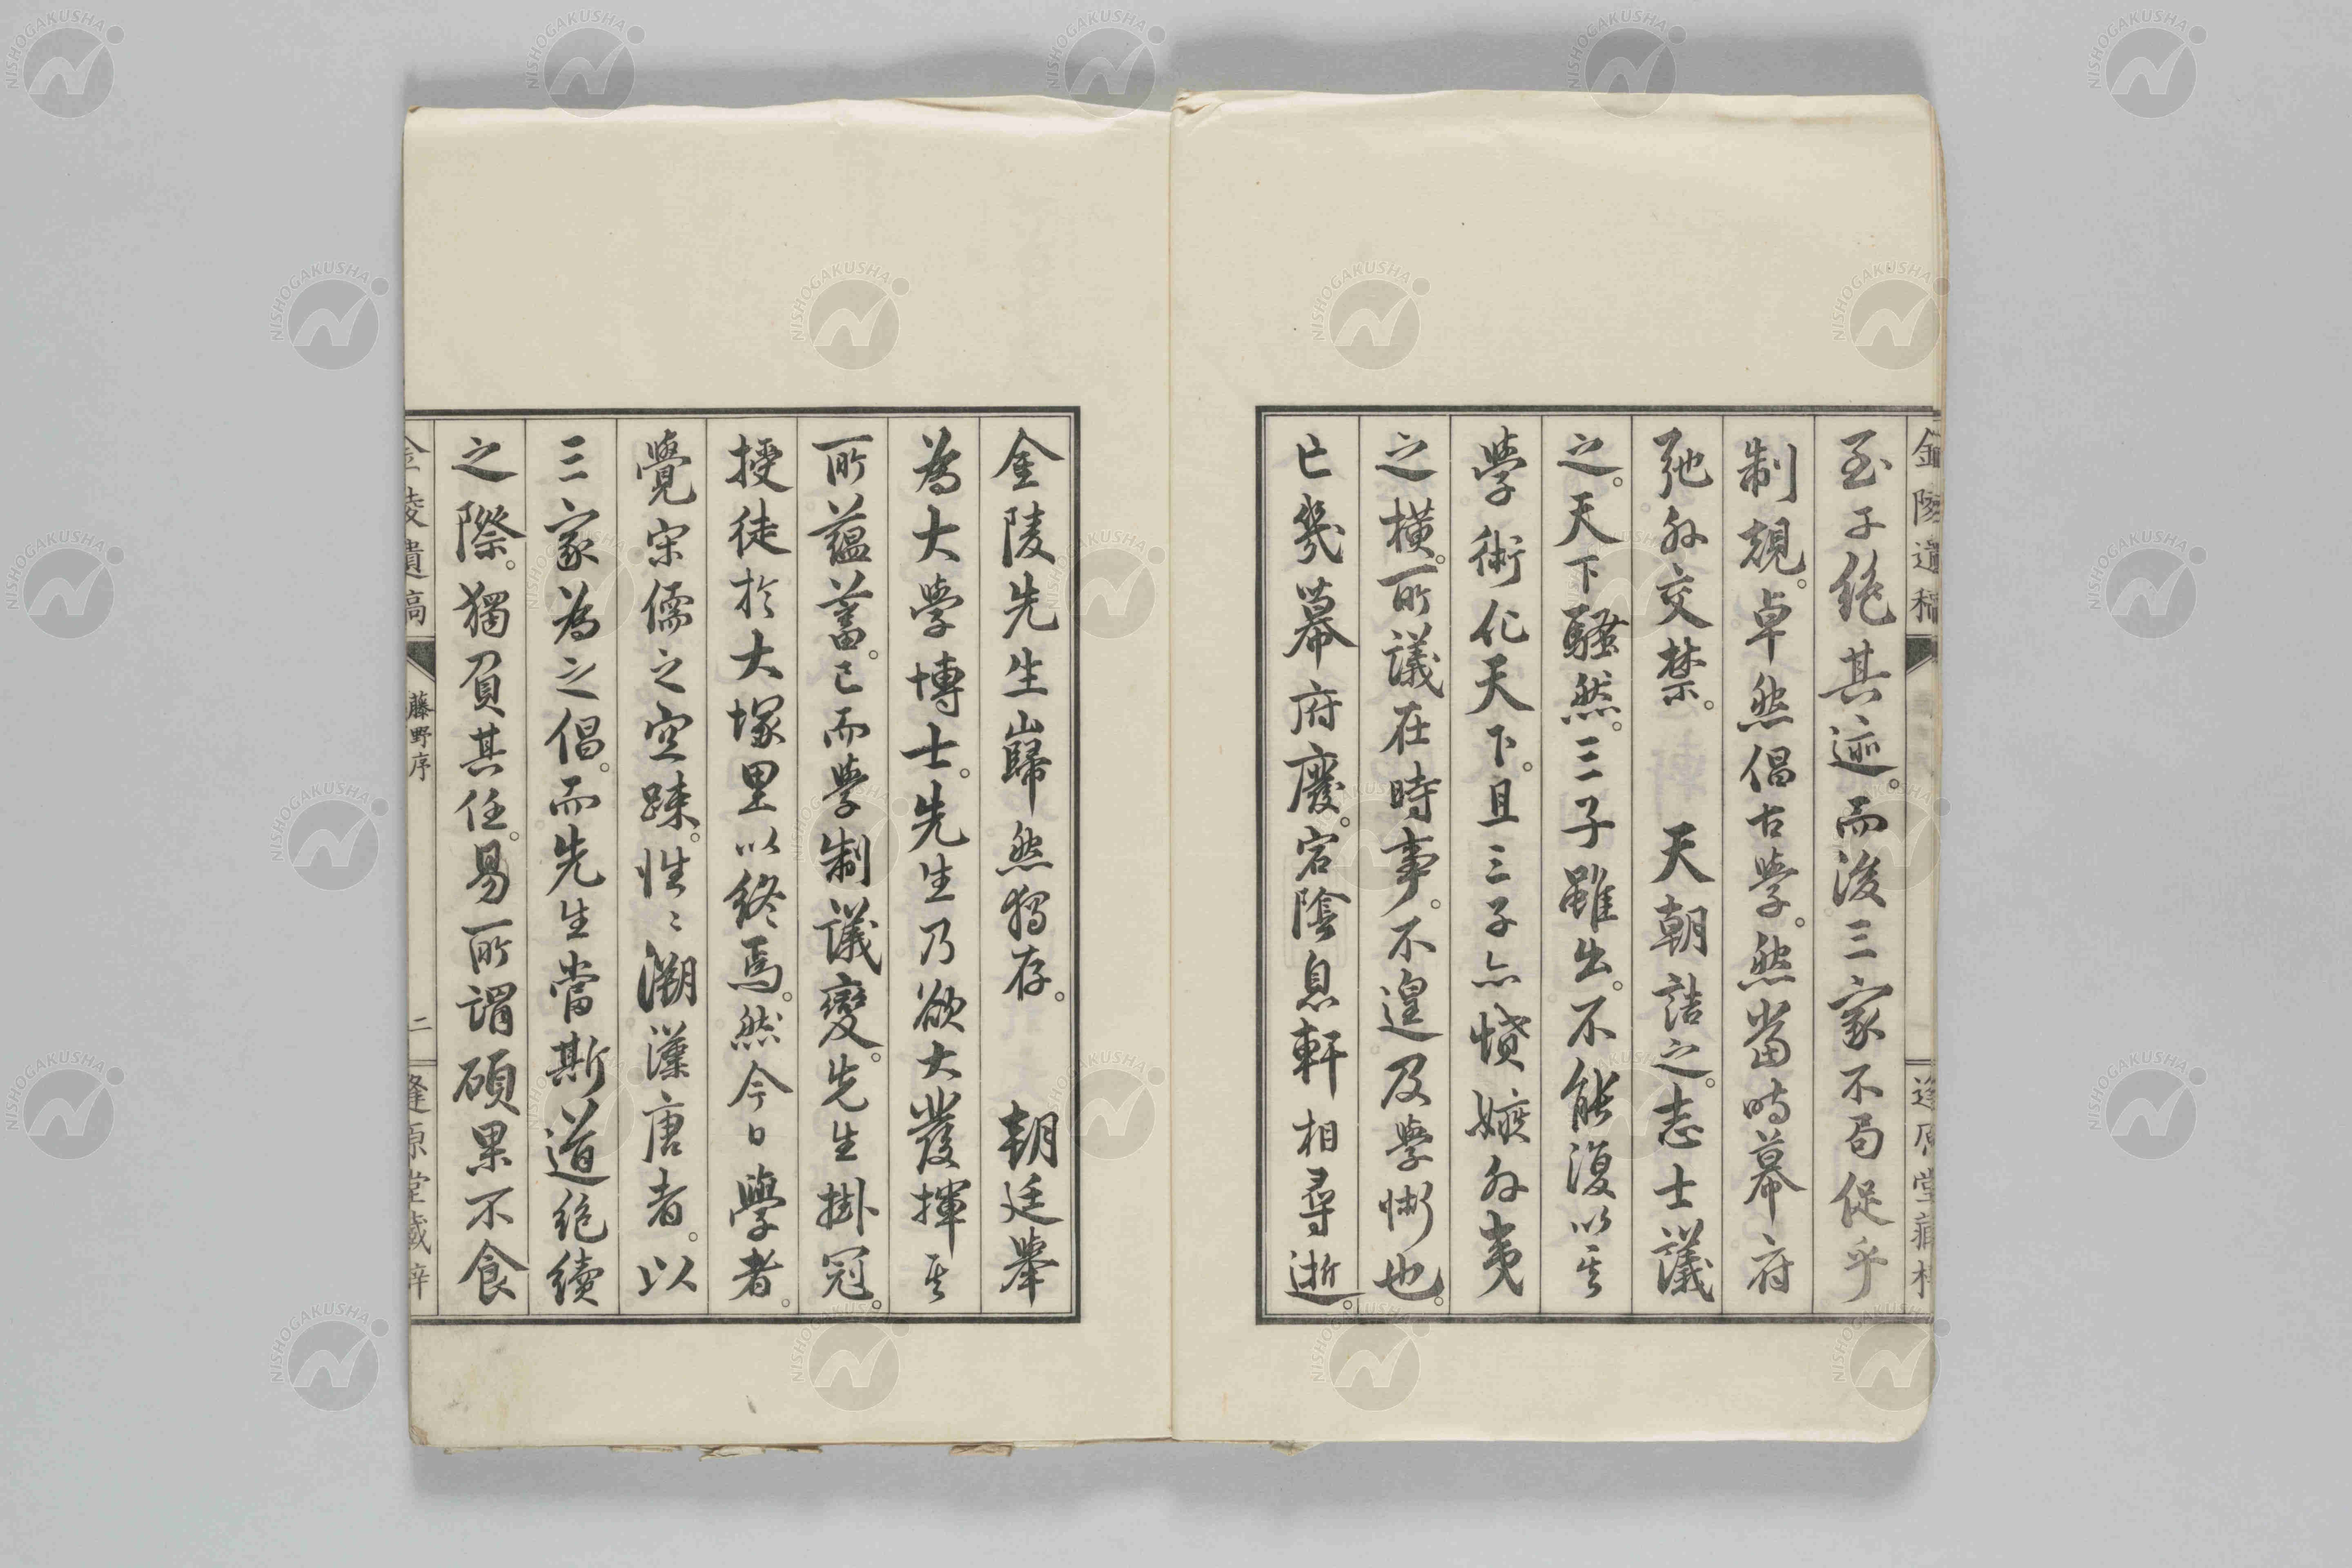 金陵遺稿
至于絕其迹。而後三家不局促乎
制規。卓然倡古學。然當時幕府
弛外交禁。 天朝詰之。志士議
之。天下騷然。三子雖出。不能復以其
學術化天下。且三子亦憤嫉外夷
之橫。所議在時事。不遑及學術也。
已幾幕府廢。宕陰息軒相尋逝。
金陵先生巋然獨存。 朝廷舉
為大學博士。先生乃欲大發揮其
所蘊蓄。已而學制議變。先生掛冠。
授徒於大塚里以終焉。然今日學者。
覺宋儒之空疎。性々溯漢唐者。以
三家為之倡。而先生當斯道絕續
之際。獨負其任。易所謂碩果不食
金陵遺稿
藤野序
二
逢原堂藏梓
NISHOGAKUSHA